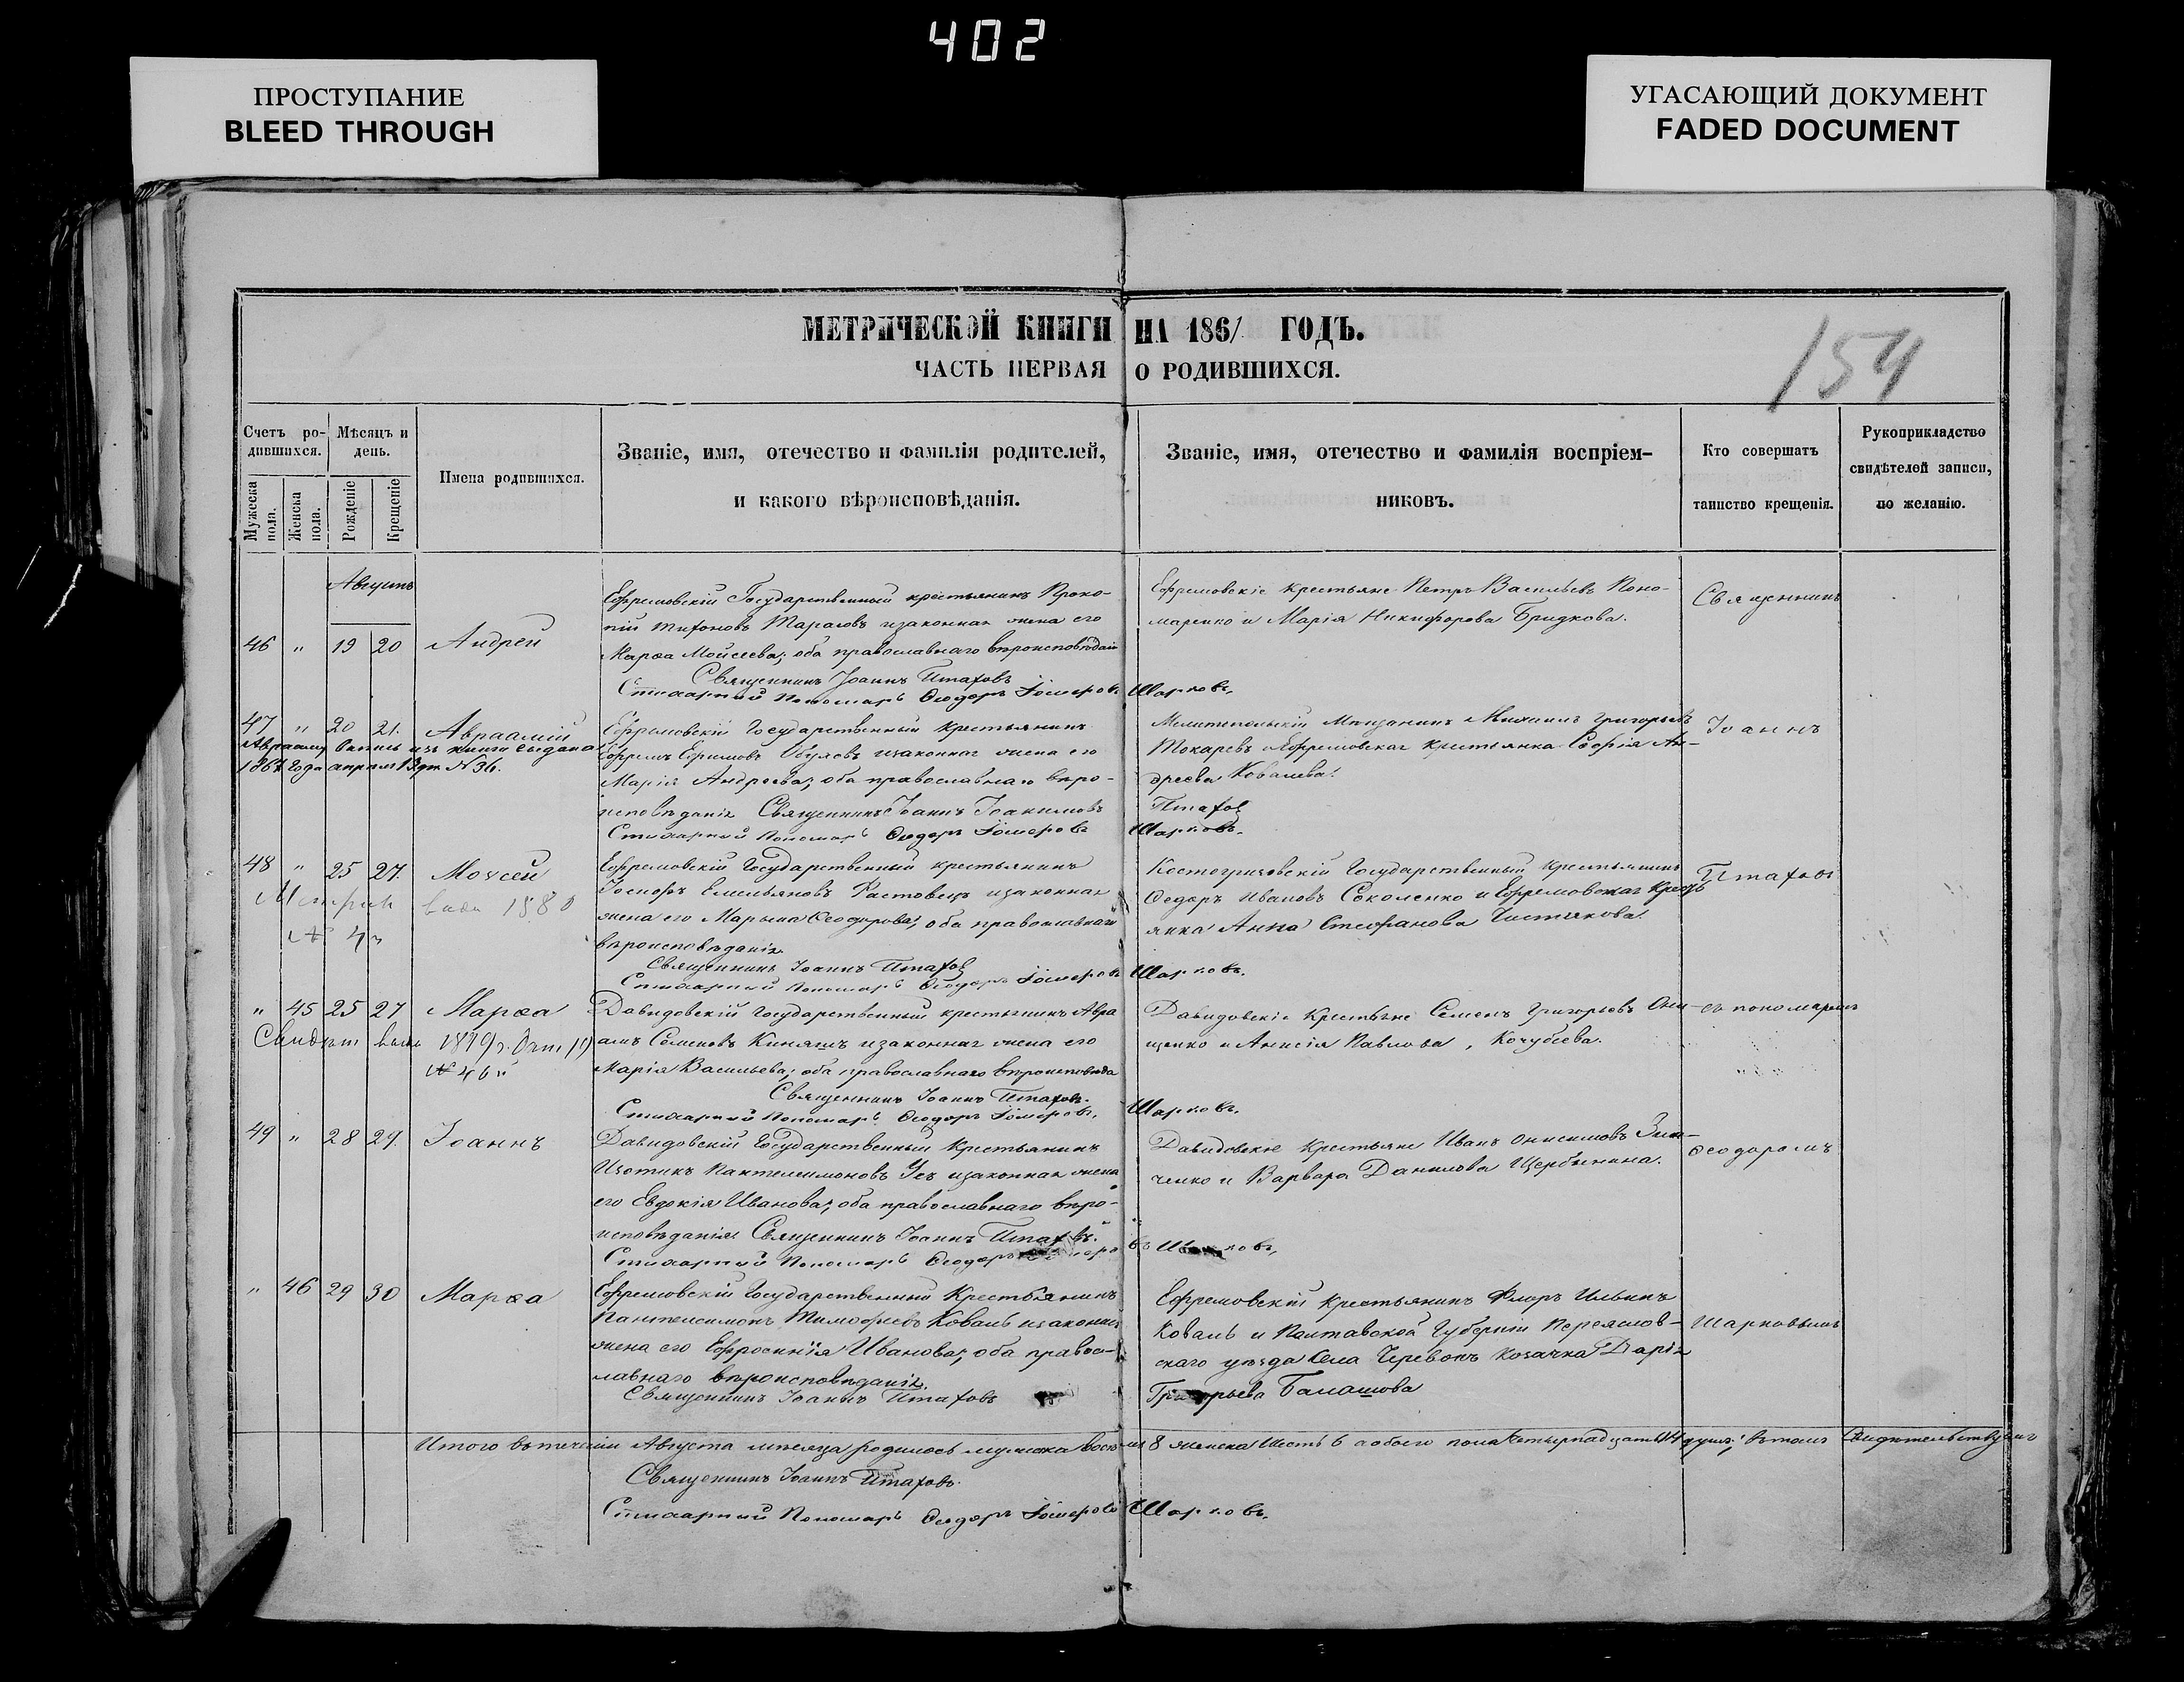 402
ПРОСТУПАНИЕ
BLEED THROUGH
УГАСАЮЩИЙ ДОКУМЕНТ
FADED DOCUMENT
МЕТРИЧЕСКОЙ КНИГИ НА 1861 ГОДЪ.
154
ЧАСТЬ ПЕРВАЯ О РОДИВШИХСЯ.
Счетъ ро-
дившихся.
Мужеска пола.
Женска пола.
Мѣсяцъ и
день.
Рожденіе
Крещеніе
Имена родившихся.
Званіе, имя, отечество и фамилія родителей,
и какого вѣроисповѣданія.
Званіе, имя, отечество и фамилія воспріем-
никовъ.
Кто совершатъ
таинство крещенія.
Рукоприкладство
свидѣтелей записи,
по желанію.
Августъ
46 " 19 20 Андрей
Ефремовскій Государственный крестьянинъ Проко-
пій Тихоновъ Тарасовъ изаконная жена его
Марѳа Моисеева; оба православнаго вѣроисповѣданія
Священникъ Іоаннъ Птаховъ
Стихарный Пономарь Ѳеодоръ Шарковъ.
Ефремовскіе крестьяне Петръ Васильевъ Поно-
маренко и Марія Никифорова Бридкова.
Священникъ
47 " 20 21. Авраамій
Авраамій Выпись изъ книги выдана
года апреля N 36.
Ефремовскій Государственный крестьянинъ
Ефремъ Ефимовъ изаконная жена его
Марія Андреева; оба православнаго вѣро-
исповѣданія Священникъ Іоаннъ Іоакимовъ Птахов
Стихарный Пономарь Ѳеодоръ Шарковъ.
Мелитопольскій Мѣщанинъ Михаилъ Григорьевъ
Токаревъ иЕфремовская крестьянка Софія Ан-
дреева Ковалева.
Іоаннъ
48 " 25 27. Моѵсей
Метрик выдн 1880
N
Ефремовскій Государственный крестьянинъ
Іосифъ Емельяновъ Растовецъ изаконная
жена его Марьяна Ѳеодорова; оба православнаго
вѣроисповѣданія
Священникъ Іоаннъ Птахов
Стихарный Пономарь Ѳеодоръ Шарковъ.
Государственный крестьянинъ
Ѳедоръ Ивановъ Соколенко и Ефремовская Крест
янка Анна Стефанова Чистякова
Птаховъ
" 45 25 27 Марѳа
Свидѣт выд 1879 г. Окт 19
N 46
Давидовскій Государственный крестьянинъ Авра
амъ Семеновъ Киняшъ изаконная жена его
Марія Васильева; оба православнаго вѣроисповѣда
Священникъ Іоаннъ Птаховъ.
Стихарный Пономарь Ѳеодоръ Шарковъ.
Давидовскіе Крестьяне Семенъ Григорьевъ Они-
щенко и Анисія Павлова, Кочубеева.
съ пономаремъ
49 " 28 29. Іоаннъ
Давидовскій Государственный Крестьянинъ
Пантелеимоновъ Усъ изаконная жена
его Евдокія Иванова; оба православнаго вѣро-
исповѣданія Священникъ Іоаннъ Птаховъ.
Стихарный Пономарь Ѳеодоръ
Давидовскіе Крестьяне Иванъ Онисимовъ Зин-
ченко и Варвара Данилова Щербинина.
Ѳеодоромъ
" 46 29 30 Марѳа
Ефремовскій Государственный Крестьянинъ
Пантелеимонъ Тимофеевъ Коваль изаконная
жена его Ефросинія Иванова; оба правос-
лавнаго вѣроисповѣданія.
Священникъ Іоаннъ Птаховъ
Ефремовскій крестьянинъ Флоръ Ильинъ
Коваль и Полтавской Губерніи Переяслов-
скаго уѣзда села Черевокъ козачка Дарія
Григорьева Балашова
Шарковымъ
Итого втеченіи Августа мѣсяца родилось мужска восемь 8 женска шесть 6 аобоего пола четырнадцать 14 душъ; вътомъ свидѣтельствуемъ
Священникъ Іоаннъ Птаховъ.
Стихарный Пономарь Ѳеодоръ Шарковъ.